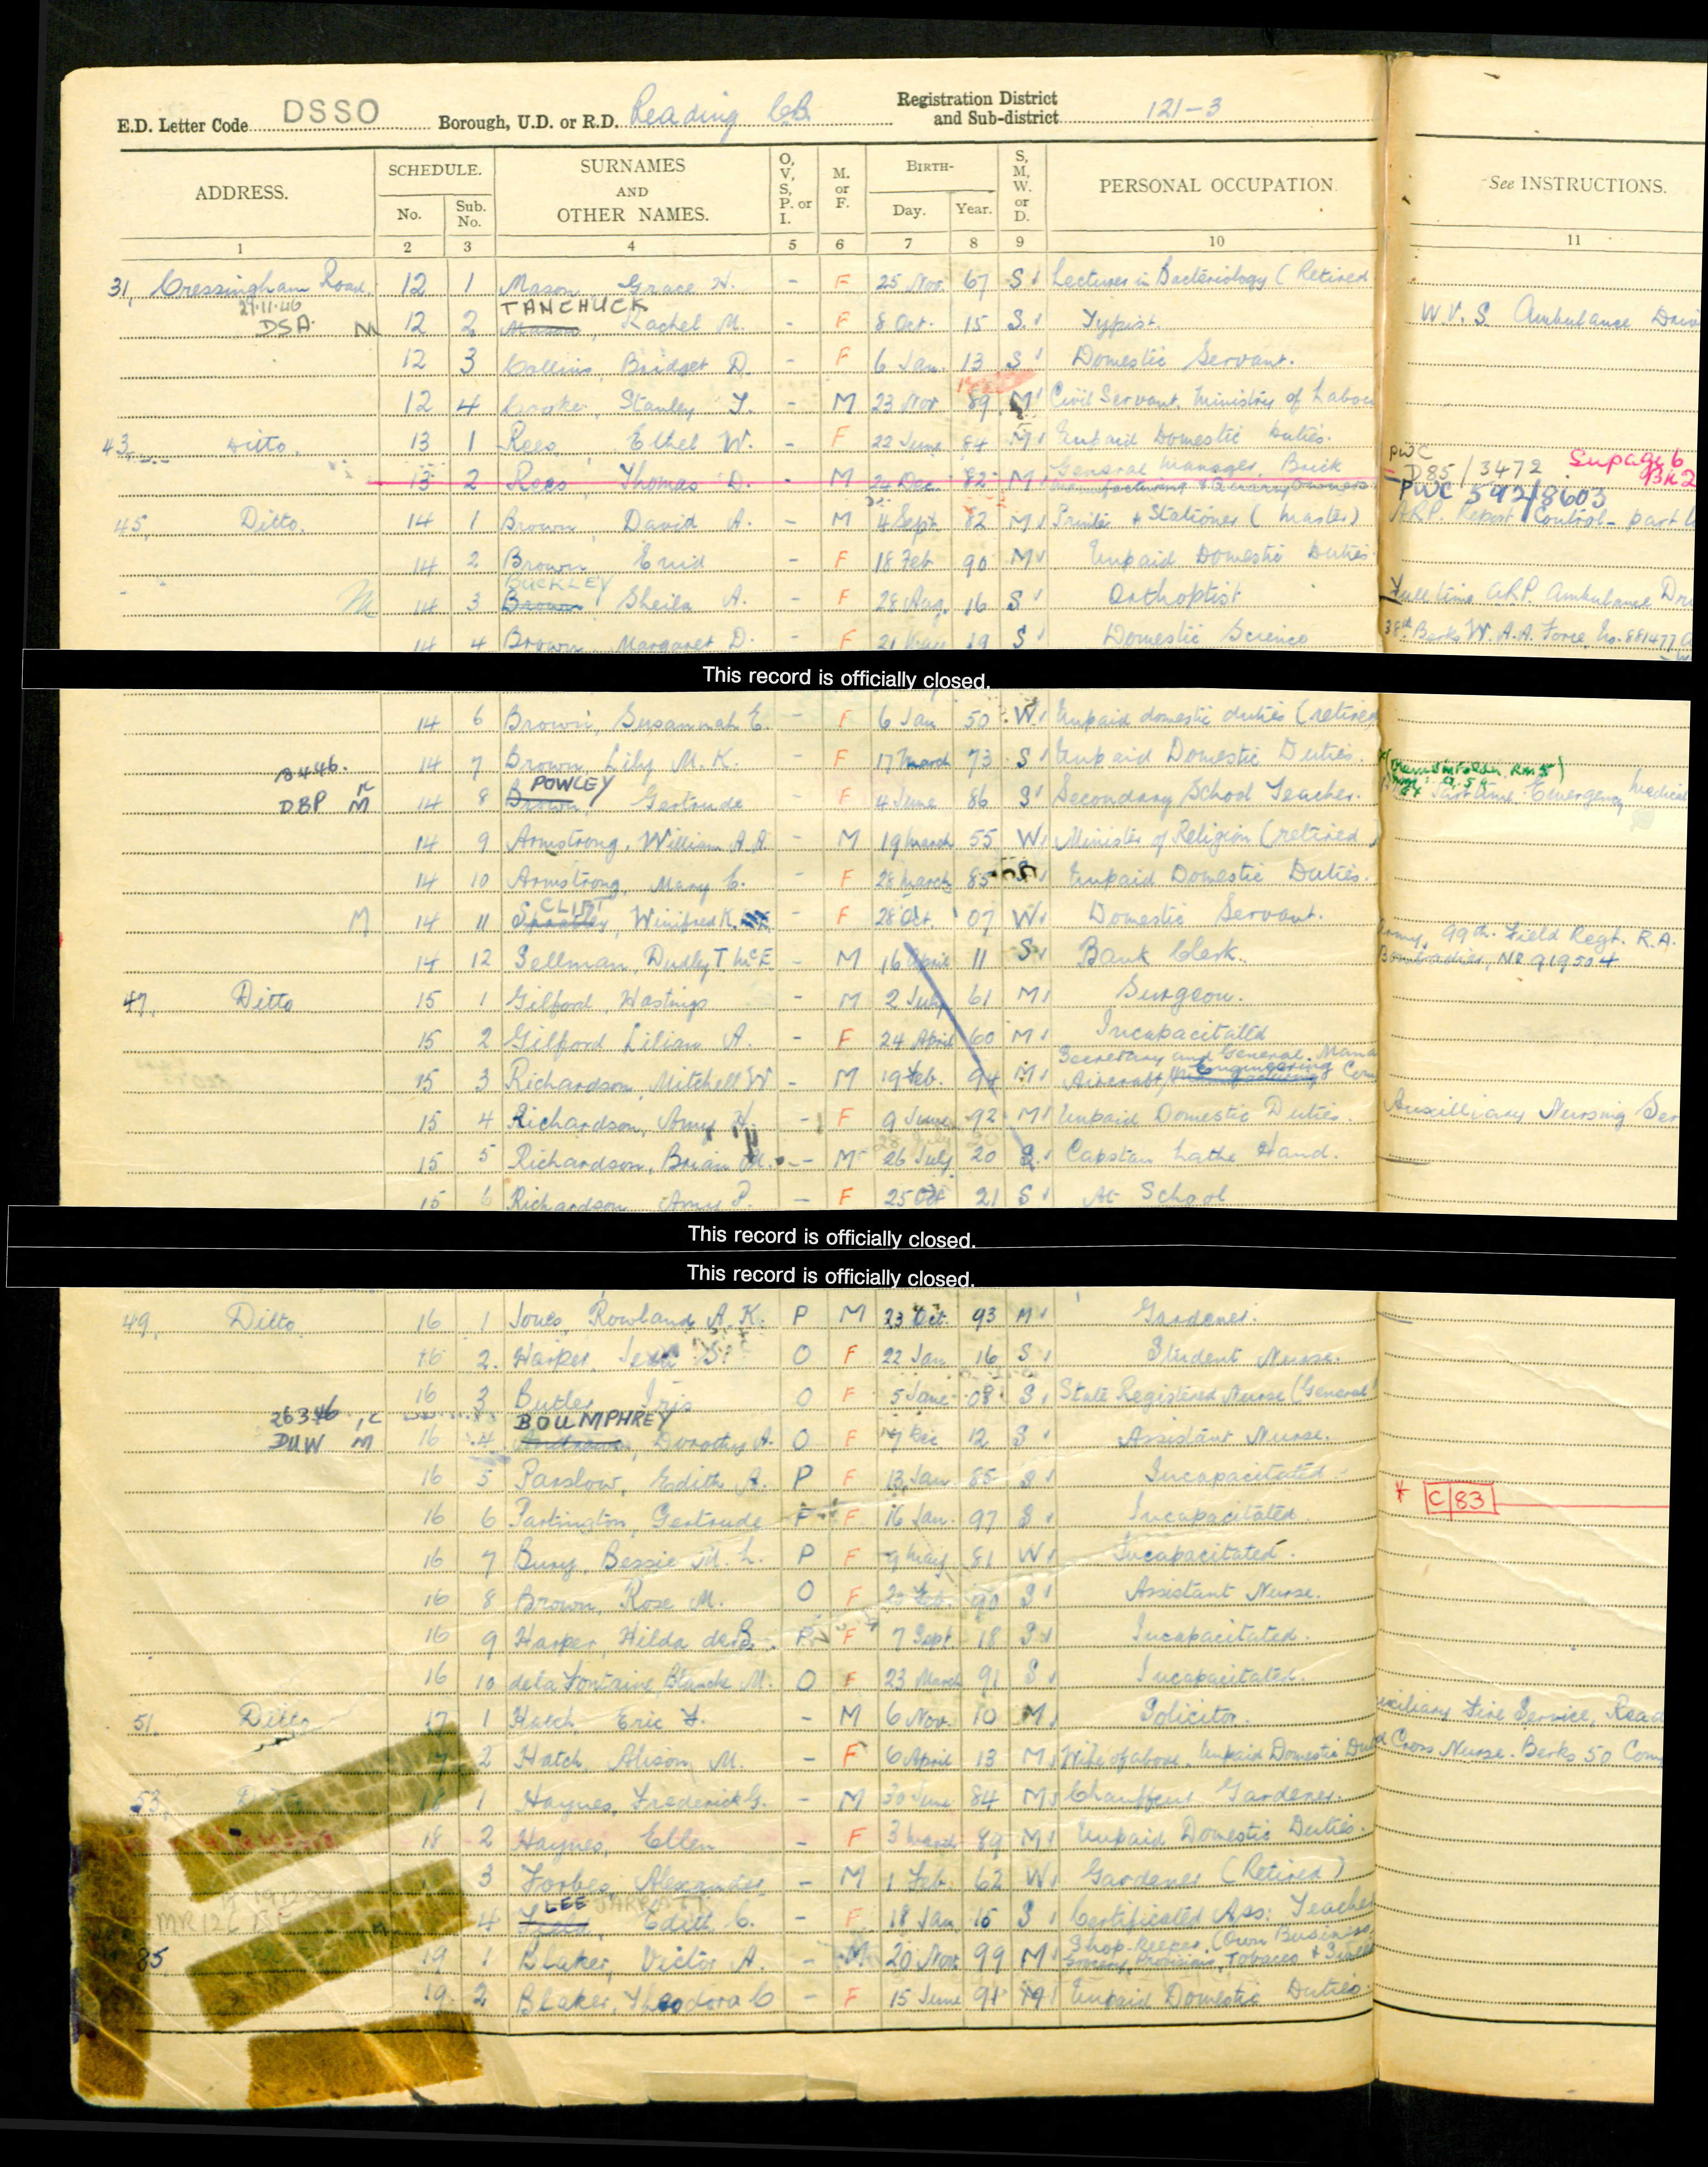 E.D. Letter Code DSSO Borough, U.D. or R.D. Reading C.B. Registration District and Sub-district 121-3
ADDRESS. SCHEDULE. No. Sub. No. SURNAMES AND OTHER NAMES. O, V, S, P. or I. M. or F. BIRTH- Day. Year. S, M, W. or D. PERSONAL OCCUPATION. See INSTRUCTIONS.
1 2 3 4 5 6 7 8 9 10 11
31, Cressingham Road. 12 1 Mason, Grace H. - F 25 Nov. 67 S Lecturer in Bacteriology (Retired
27.11.46 TANCHUCK
DSA. M 12 2 Mason, Rachel M. - F 8 Oct. 15 S Typist. W.V.S. Ambulance
12 3 Collins, Bridget D. - F 6 Jan. 13 S Domestic Servant.
12 4 Stanley - M 23 Nov 89 M Civil Servant, Ministry of Labou
43, Ditto. 13 1 Rees, Ethel W. - F 22 June 84 M Unpaid Domestic Duties.
13 2 Rees, Thomas D. - M 24 Dec. 82 M General Manager, Brick
PWC D85/3472 Supage 6
PWC 592/8603
45, Ditto. 14 1 Brown, David A. - M 4 Sept. 82 M Printer & Stationer (Master) A.R.P. Report Control - part
14 2 Brown Enid - F 18 Feb 90 M Unpaid Domestic Duties.
BUCKLEY
M 14 3 Brown Sheila A. - F 28 Aug. 16 S Orthoptist Full time A.R.P. Ambulance
14 4 Brown, Margaret D. - F 21 19 S Domestic Science 38th Berks W.A.A. Force, No. 881477
This record is officially closed.
14 6 Brown, Susannah E. - F 6 Jan 50 W Unpaid domestic duties (retired
14 7 Brown, Lily M. K. - F 17 March 73 S Unpaid Domestic Duties.
POWLEY
DBP M 14 8 Brown, Gertrude - F 4 June 86 S Secondary School Teacher. Part time Emergency Medical
14 9 Armstrong, William A.A. - M 19 March 55 W Minister of Religion (retired)
14 10 Armstrong, Mary C. - F 28 March 85 S Unpaid Domestic Duties.
M 14 11 Winifred K. - F 28 Oct. 07 W Domestic Servant.
14 12 Sellman, Dudley T. McE - M 16 April 11 S Bank Clerk. Army, 99th Field Regt. R.A.
Bombardier, No 919504
47, Ditto 15 1 Gilford, Hastings - M 2 July 61 M Surgeon.
15 2 Gilford Lilian A. - F 24 April 60 M Incapacitated
Secretary and General Mana
15 3 Richardson, Mitchell W - M 19 Feb. 94 M Aircraft Engineering Com
15 4 Richardson, Amy H. - F 9 June 92 M Unpaid Domestic Duties. Auxilliary Nursing Ser
28 July 20
15 5 Richardson, Brian M. - M 26 July 20 S. Capstan Lathe Hand.
15 6 Richardson Amy P. - F 25 Oct 21 S At School
This record is officially closed.
This record is officially closed.
49, Ditto. 16 1 Jones, Rowland A. K. P M 23 Oct. 93 M Gardener.
16 2. Harper, O F 22 Jan 16 S Student Nurse.
16 3 Butler Iris O F 5 June 08 S State Registered Nurse (General)
26346 BOUMPHREY
DUW M 16 4 Dorothy A. O F Dec 12 S Assistant Nurse.
16 5 Parslow, Edith A. P F 13 Jan. 85 S Incapacitated
16 6 Partington, Gertrude P F 16 Jan. 97 S Incapacitated. C/83
16 7 Bury, Bessie M. L. P F 9 May 81 W Incapacitated.
16 8 Brown, Rose M. O F Feb. 90 S Assistant Nurse.
16 9 Harper, Hilda de B. P F 7 Sept 18 S Incapacitated.
16 10 de la Fontaine, Blanche M. O F 23 March 91 S Incapacitated.
51, Ditto 17 1 Hatch, Eric F. - M 6 Nov. 10 M Solicitor. Auxiliary Fire Service, Read
17 2 Hatch, Alison M. - F 6 April 13 M Wife of above, Unpaid Domestic Dut Red Cross Nurse. Berks 50
53, Ditto 18 1 Haynes, Frederick G. - M 30 June 84 M Chauffeur Gardener.
18 2 Haynes, Ellen - F 3 March 89 M Unpaid Domestic Duties.
3 Forbes, Alexander - M 1 Feb. 62 W Gardener (Retired)
LEE
4 Edith C. - F 18 Jan 15 S Certificated Ass: Teacher
85, 19 1 Blaker, Victor A. - M 20 Nov. 99 M Shop-keeper, (Own Business
Grocery, Provisions, Tobacco &
19 2 Blaker, Theodora C - F 15 June 91 M Unpaid Domestic Duties.